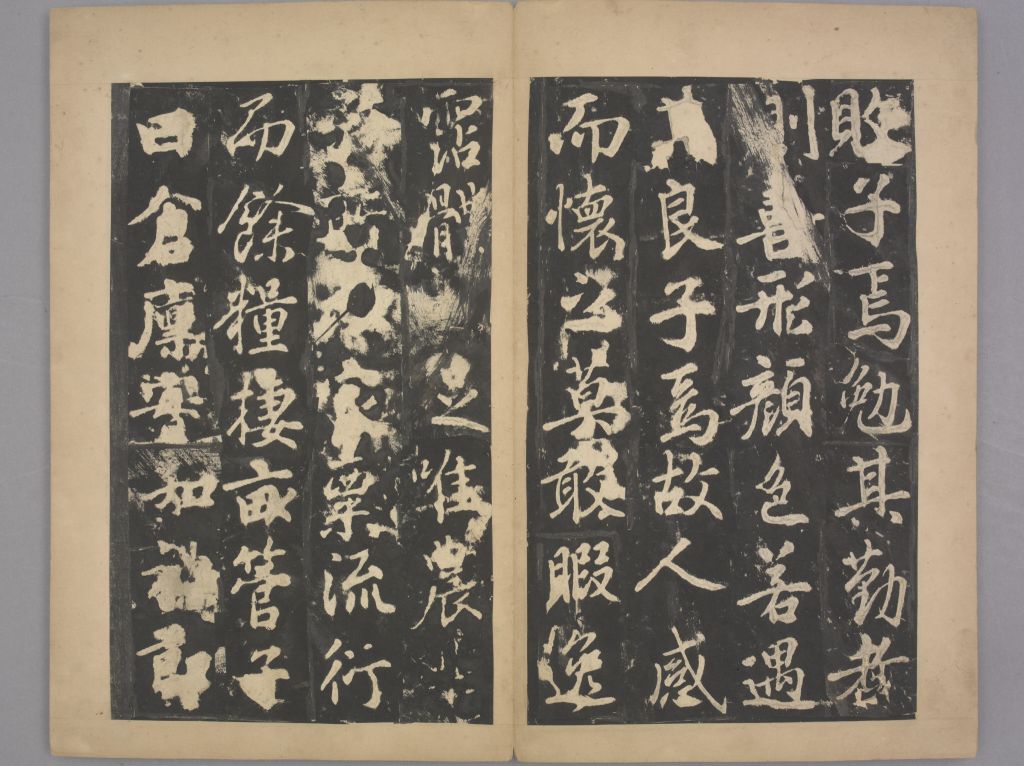 敗子焉勉其勤者
則喜形顏色若遇
良子焉故人感
而懷之莫敢暇逸
霑體之唯農
家粟流行
而餘糧棲畝管子
曰倉廩實知禮節